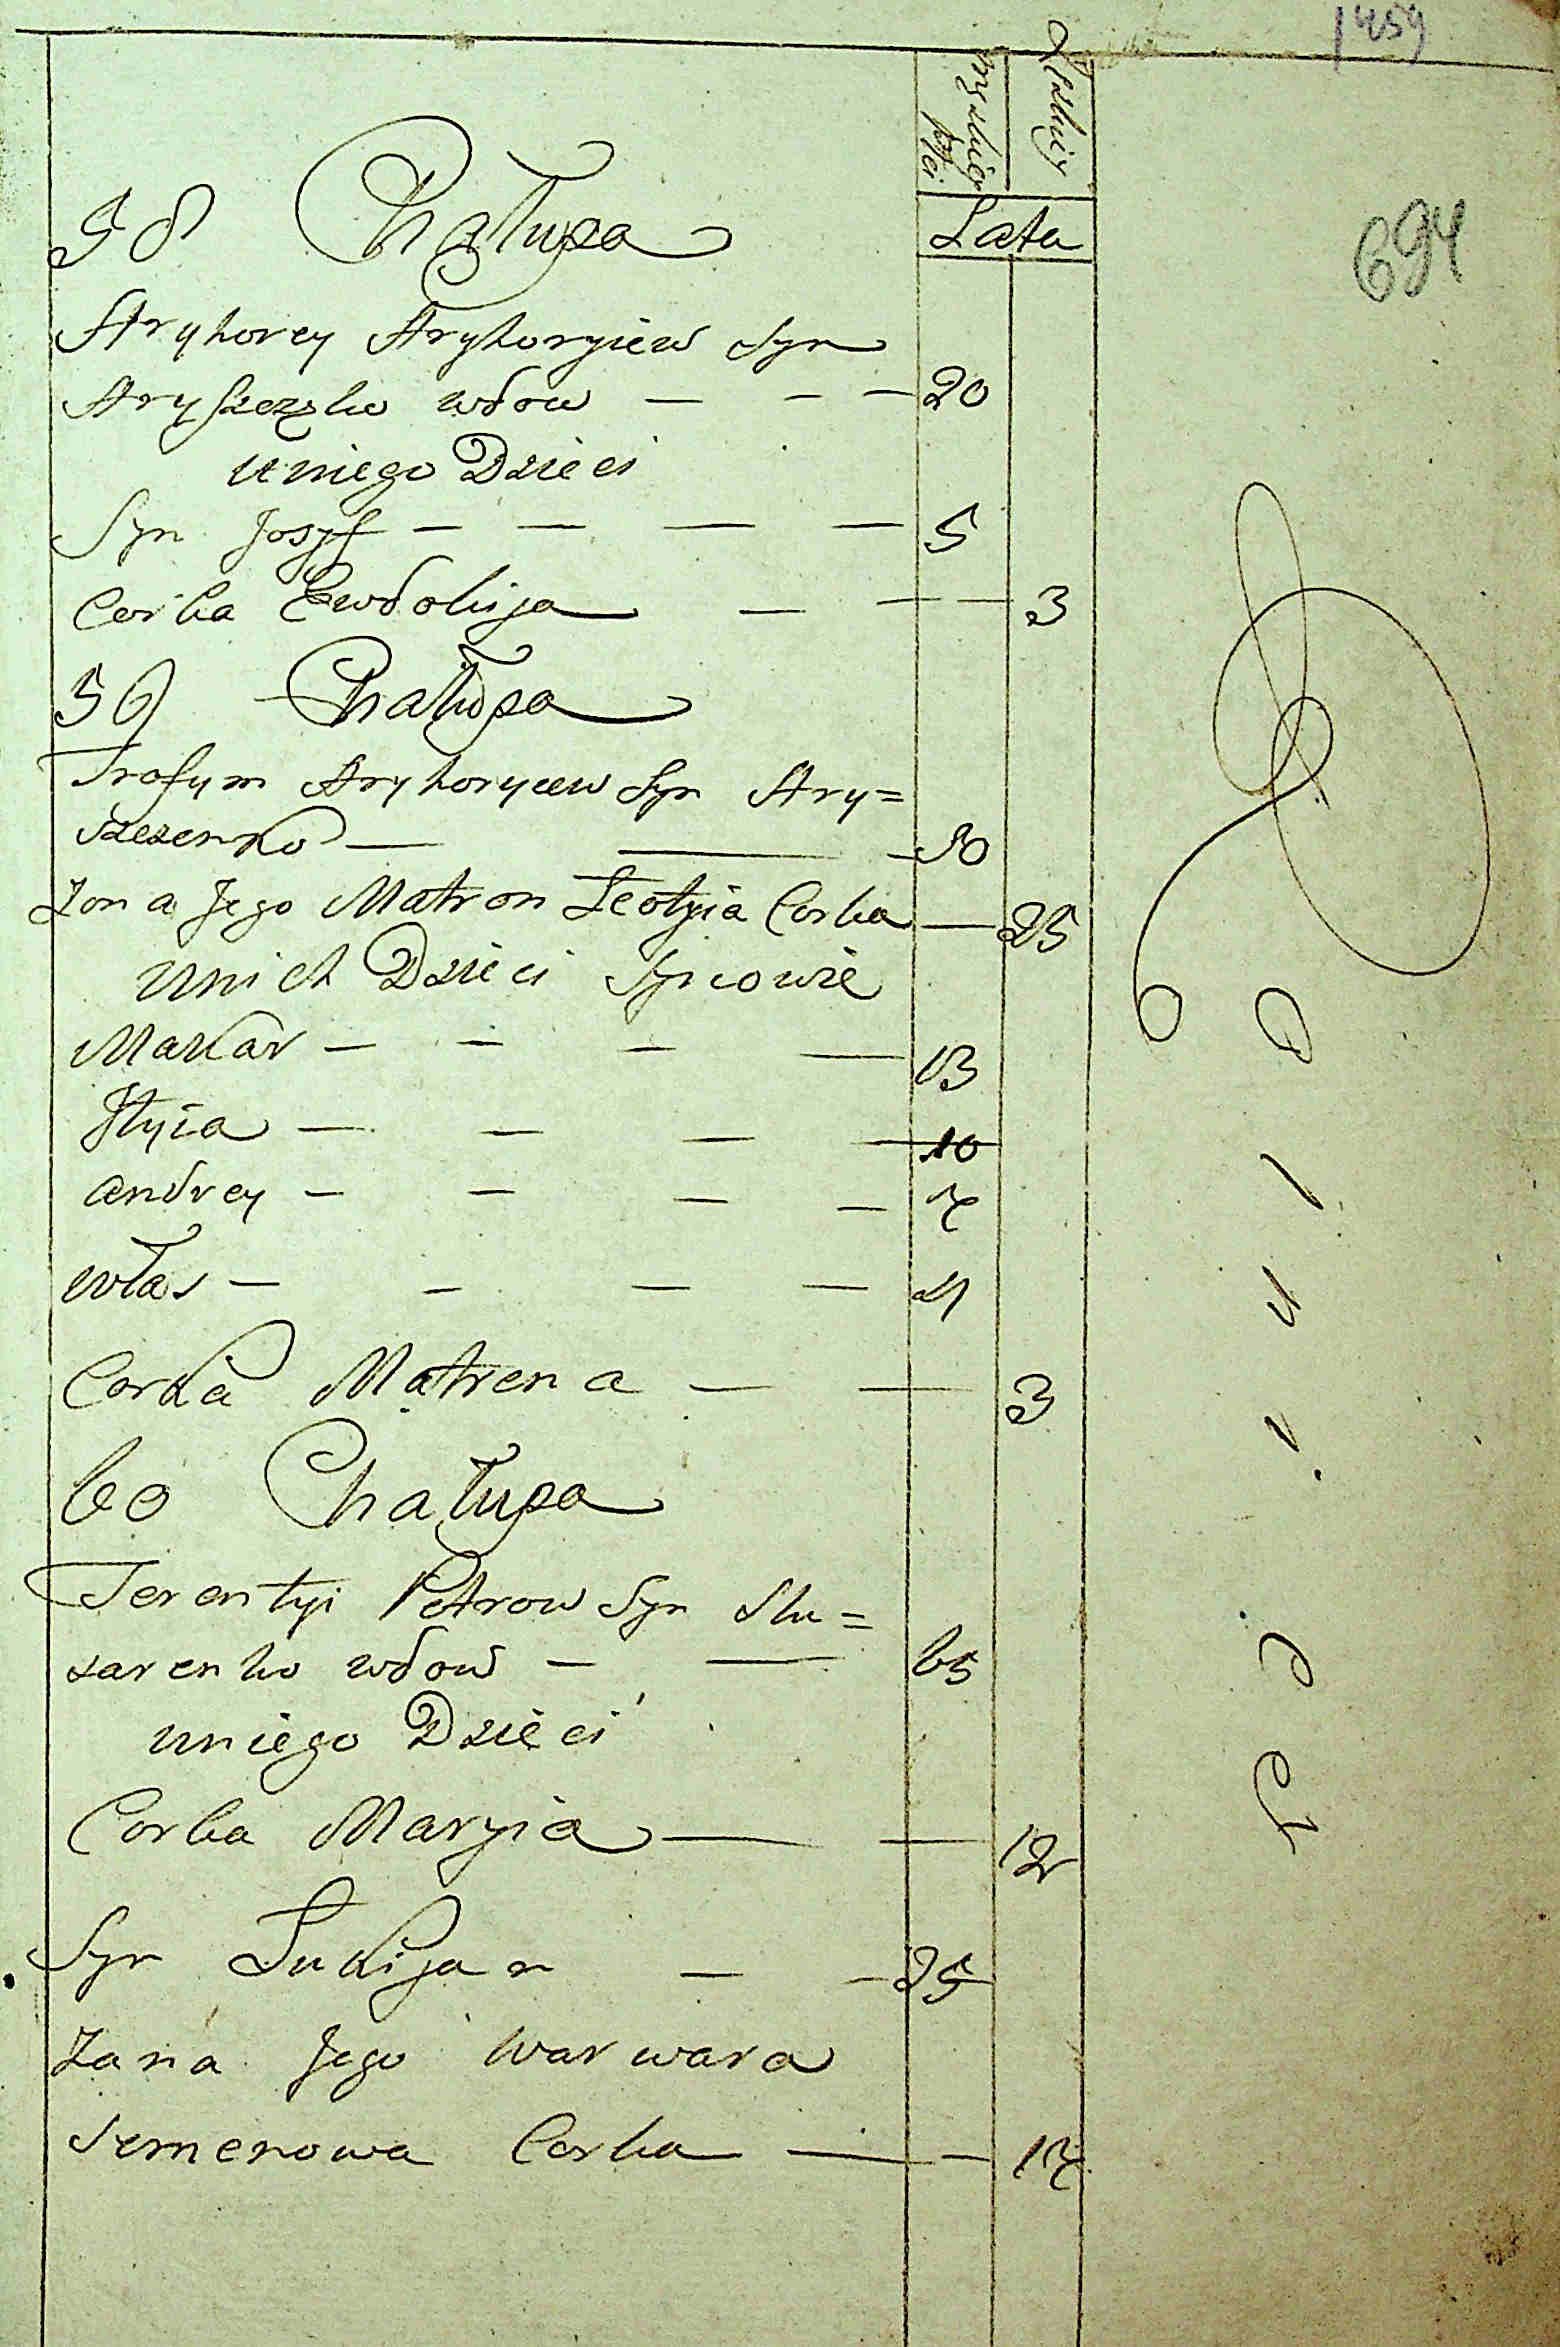 1459
694
Lata
58 Chałupa
Hryhorey Hryhoryiew Syn
Hryszczko wdow — — — 20
U niego Dzieci
Syn Josyf — — — — 5
Corka Ewdokija — — — 3
59 Chałupa
Trofym Hryhoryiew Syn Hry=
szczenko — — — 30
Zona Jego Matron Leotyia Corka — 25
U nich Dzieci Synowie
Makar — — — — 13
Jłyia — — — — 10
Andrey — — — — 7
Włas — — — — 4
Corka Matrena — — 3
60 Chałupa
Terentyi Petrow Syn Slu=
sarenko wdow — — 65
U niego Dzieci
Corka Maryia — — 12
Syn Łukijan — — 25
Zona Jego Warwara
Semenowa Corka — — 17